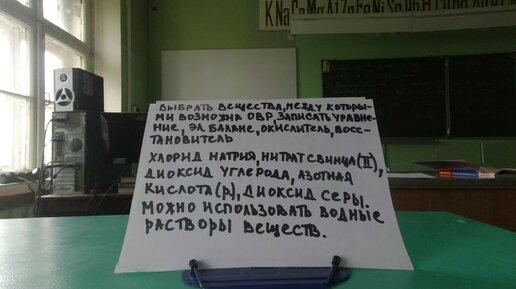 K Na Ca Mg Al Zn Fe Ni Sn Pb H
ВЫБРАТЬ ВЕЩЕСТВА, МЕЖДУ КОТОРЫ-
МИ ВОЗМОЖНА ОВР, ЗАПИСАТЬ УРАВНЕ-
НИЕ, ЭЛ. БАЛАНС, ОКИСЛИТЕЛЬ, ВОСС-
ТАНОВИТЕЛЬ
ХЛОРИД НАТРИЯ, НИТРАТ СВИНЦА (II),
ДИОКСИД УГЛЕРОДА, АЗОТНАЯ
КИСЛОТА (Р), ДИОКСИД СЕРЫ.
МОЖНО ИСПОЛЬЗОВАТЬ ВОДНЫЕ
РАСТВОРЫ ВЕЩЕСТВ.